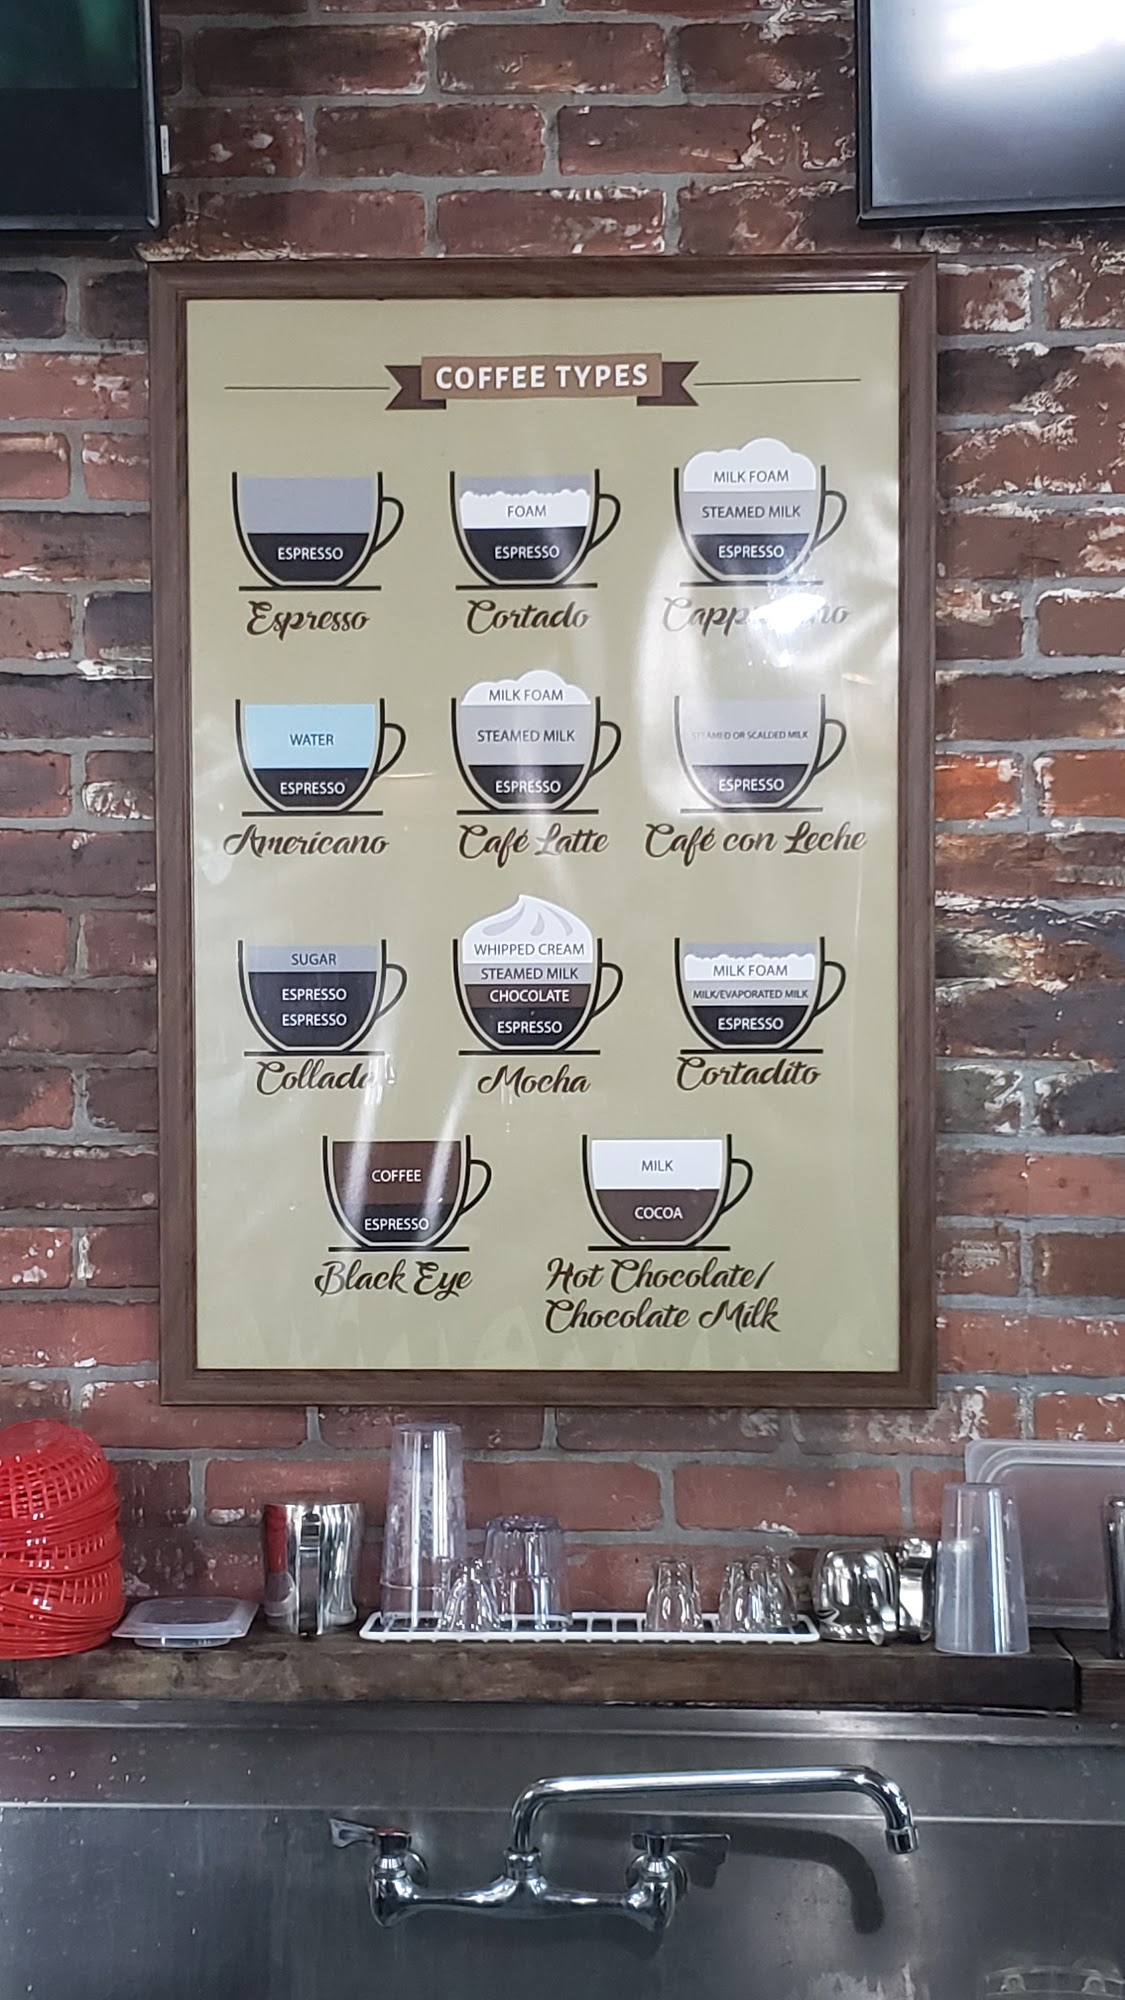 COFFEE TYPES
ESPRESSO
Espresso
FOAM
ESPRESSO
Cortado
MILK FOAM
STEAMED MILK
ESPRESSO
WATER
ESPRESSO
Americano
MILK FOAM
STEAMED MILK
ESPRESSO
Café Latte
STEAMED OR SCALDED MILK
ESPRESSO
Café con Leche
SUGAR
ESPRESSO
ESPRESSO
Collado
WHIPPED CREAM
STEAMED MILK
CHOCOLATE
ESPRESSO
Mocha
MILK FOAM
MILK/EVAPORATED MILK
ESPRESSO
Cortadito
COFFEE
ESPRESSO
Black Eye
MILK
COCOA
Hot Chocolate/
Chocolate Milk